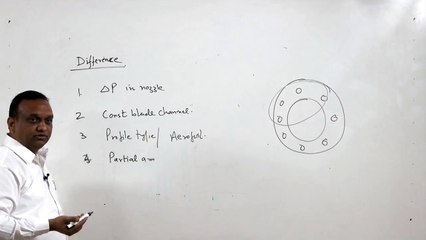 Difference
1 ΔP in nozzle
2 Const blade channel.
3 Profile type / Aerofoil.
4 Partial am